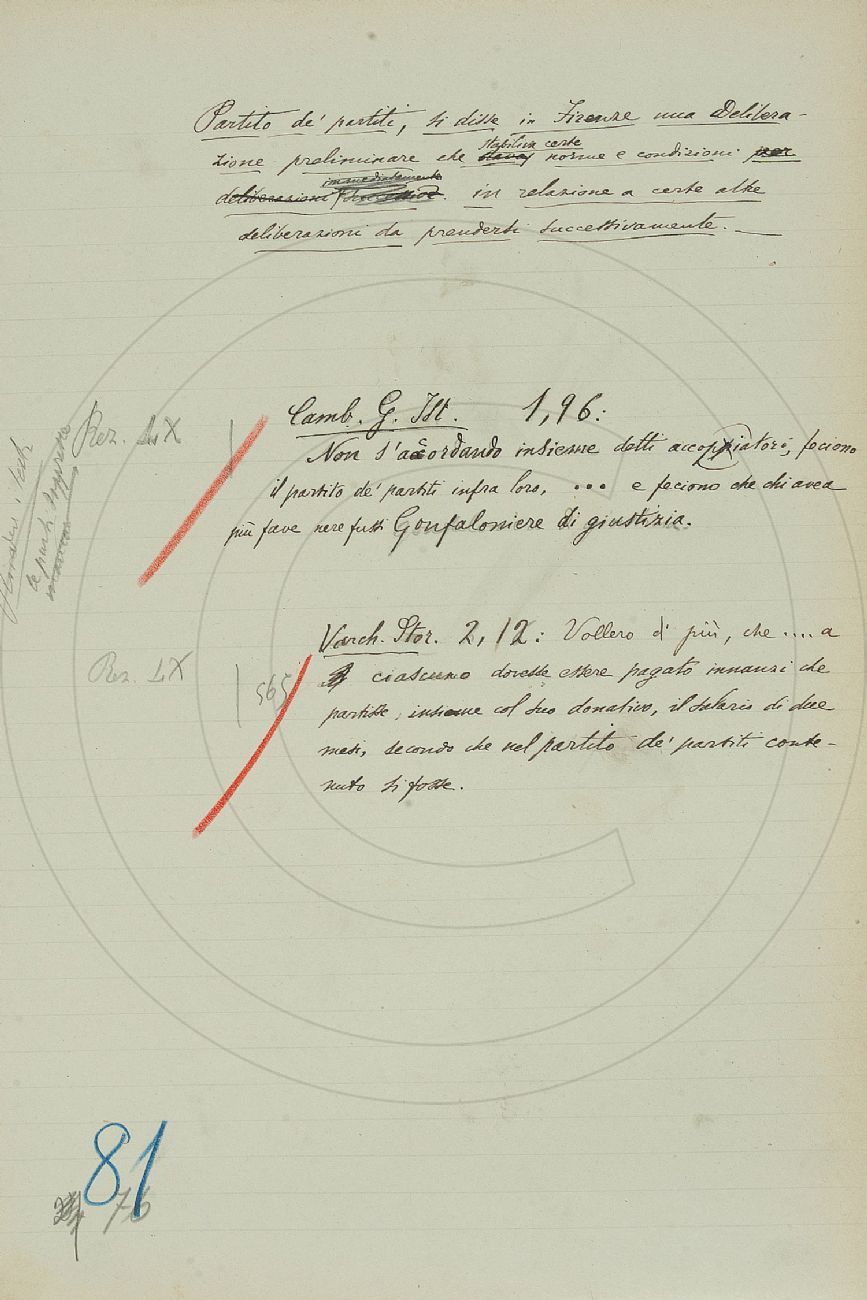 Partito de' partiti, si disse in Firenze una Delibera-
zione preliminare che stabiliva certe norme e condizioni per
deliberazioni immediatamente in relazione a certe altre
deliberazioni da prendersi successivamente. —
Camb. G. Ist. 1,96:
Rez. LX
Non s'accordando insieme detti accoppiatori, feciono
il partito de' partiti infra loro, ... e feciono che chi avea
più fave nere fussi Gonfaloniere di giustizia.
Varch. Stor. 2, 12: Vollero di più, che .... a
Rez. LX
565
ciascuno dovesse essere pagato innanzi che
partisse, insieme col suo donativo, il salario di due
mesi, secondo che nel partito de' partiti conte-
nuto si fosse.
81
76